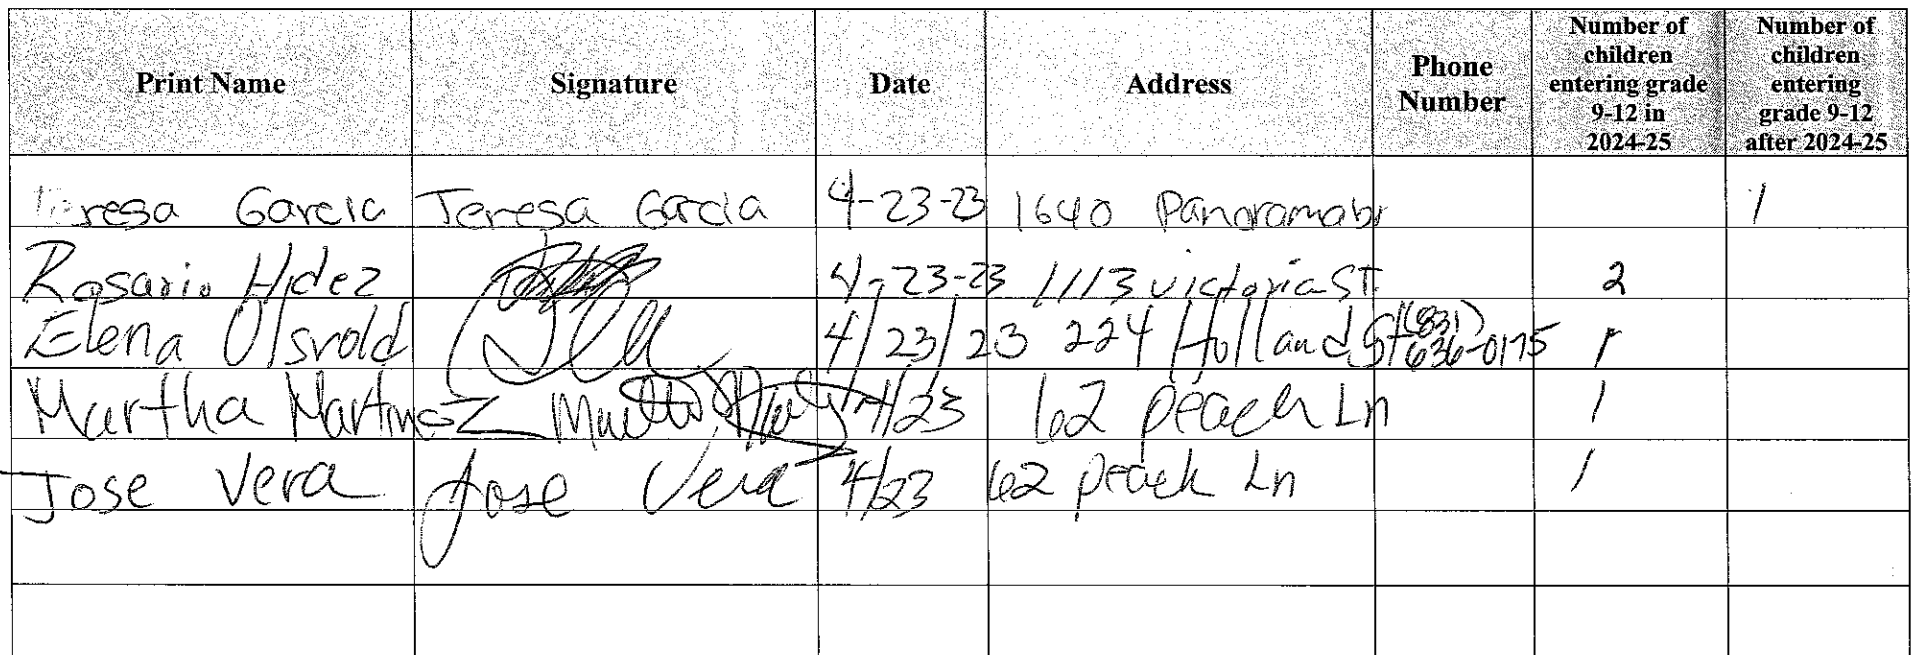 Print Name Signature Date Address Phone Number Number of children entering grade 9-12 in 2024-25 Number of children entering grade 9-12 after 2024-25
Teresa Garcia Teresa Garcia 4-23-23 1640 Panorama Dr 1
Rosario Hdez 4-23-23 1113 victoria ST 2
Elena 4/23/23 224 Holland St (831) 636-0175 1
Martha Martinez 4/23 62 peach Ln 1
Jose Vera Jose Vera 4/23 62 peach Ln 1